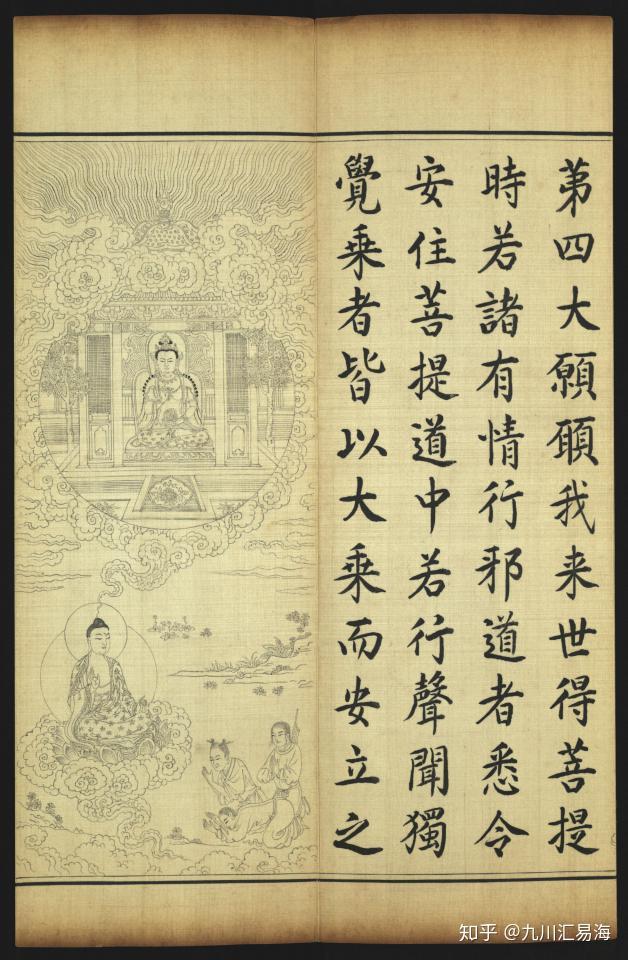 第四大願願我来世得菩提
時若諸有情行邪道者悉令
安住菩提道中若行聲聞獨
覺乘者皆以大乘而安立之
知乎 @九川汇易海